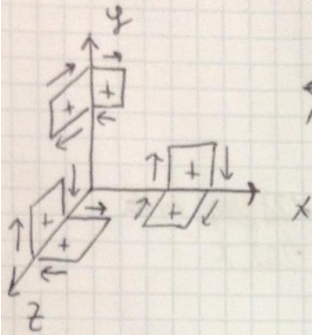 y
+
+
+
+
+
+
x
z